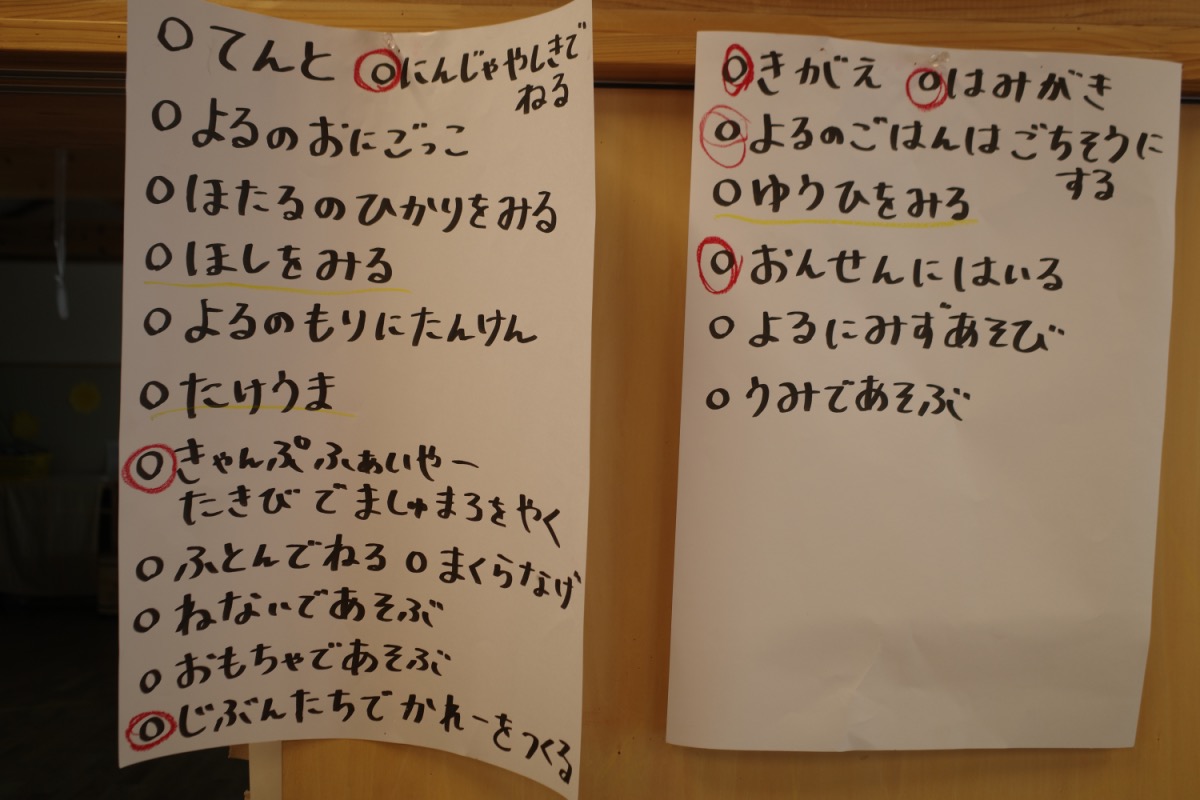 ○ てんと ○ にんじゃやしきで
ねる
○ よるのおにごっこ
○ ほたるのひかりをみる
○ ほしをみる
○ よるのもりにたんけん
○ たけうま
○ きゃんぷふぁいやー
たきびでましゅまろをやく
○ ふとんでねる ○ まくらなげ
○ ねないであそぶ
○ おもちゃであそぶ
○ じぶんたちでかれーをつくる
○ きがえ ○ はみがき
○ よるのごはんはごちそうに
する
○ ゆうひをみる
○ おんせんにはいる
○ よるにみずあそび
○ うみであそぶ